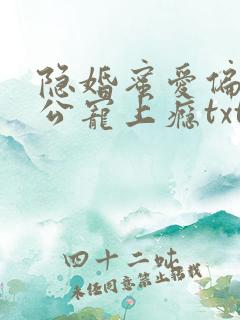 隐婚蜜爱偏
公宠上瘾txt
四十二妖
未经同意禁止转载